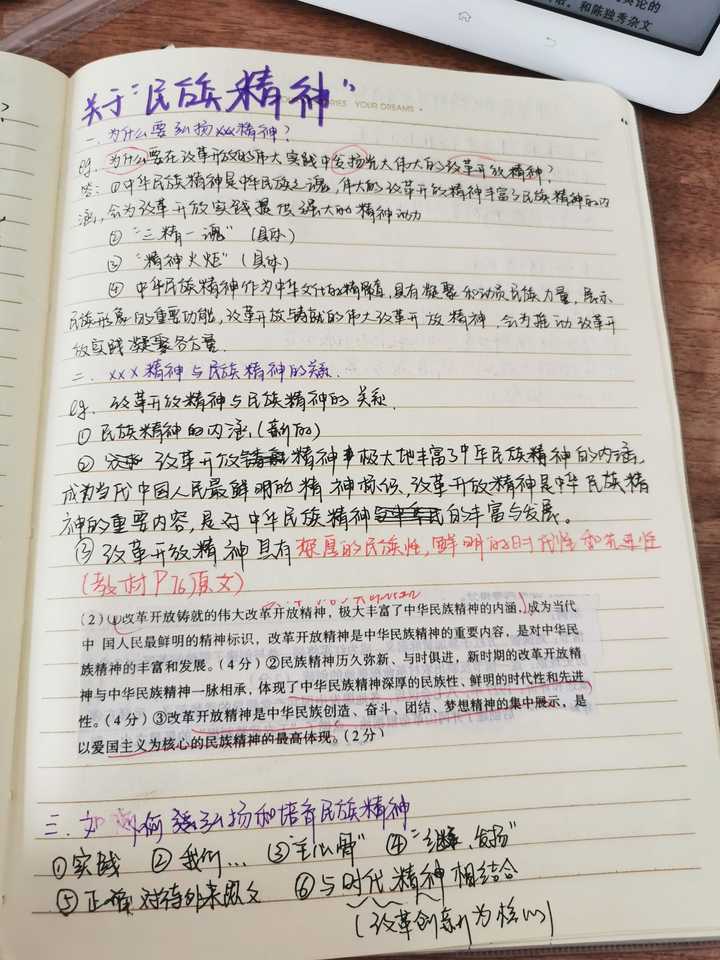 和陈独秀杂文
YOUR DREAMS
关于"民族精神"
一、为什么要弘扬xxx精神?
eg. 为什么要在改革开放的伟大实践中发扬光大伟大的改革开放精神?
答: ①中华民族精神是中华民族之魂, 伟大的改革开放精神丰富了民族精神的内
涵, 会为改革开放实践提供强大的精神动力
② "三精一魂" (具体)
③ "精神火炬" (具体)
④ 中华民族精神作为中华文化的精髓, 具有凝聚和动员民族力量, 展示
民族形象的重要功能, 改革开放铸就的伟大改革开放精神, 会为推动改革开
放实践凝聚各力量.
二、xxx精神与民族精神的关系.
eg. 改革开放精神与民族精神的关系.
① 民族精神的内涵(新的)
② 改革开放精神极大地丰富了中华民族精神的内涵,
成为当代中国人民最鲜明的精神标识, 改革开放精神是中华民族精
神的重要内容, 是对中华民族精神的丰富与发展。
③ 改革开放精神具有深厚的民族性, 鲜明的时代性和先进性
(教材P76原文)
(2) ①改革开放铸就的伟大改革开放精神, 极大丰富了中华民族精神的内涵, 成为当代
中国人民最鲜明的精神标识, 改革开放精神是中华民族精神的重要内容, 是对中华民
族精神的丰富和发展。(4分) ②民族精神历久弥新、与时俱进, 新时期的改革开放精
神与中华民族精神一脉相承, 体现了中华民族精神深厚的民族性、鲜明的时代性和先进
性。(4分) ③改革开放精神是中华民族创造、奋斗、团结、梦想精神的集中展示, 是
以爱国主义为核心的民族精神的最高体现。(2分)
三. 如何弘扬和培育民族精神
①实践 ②我们... ③"主心骨" ④"继承, 发扬"
⑤正确对待外来思文 ⑥与时代精神相结合
(改革创新为核心)